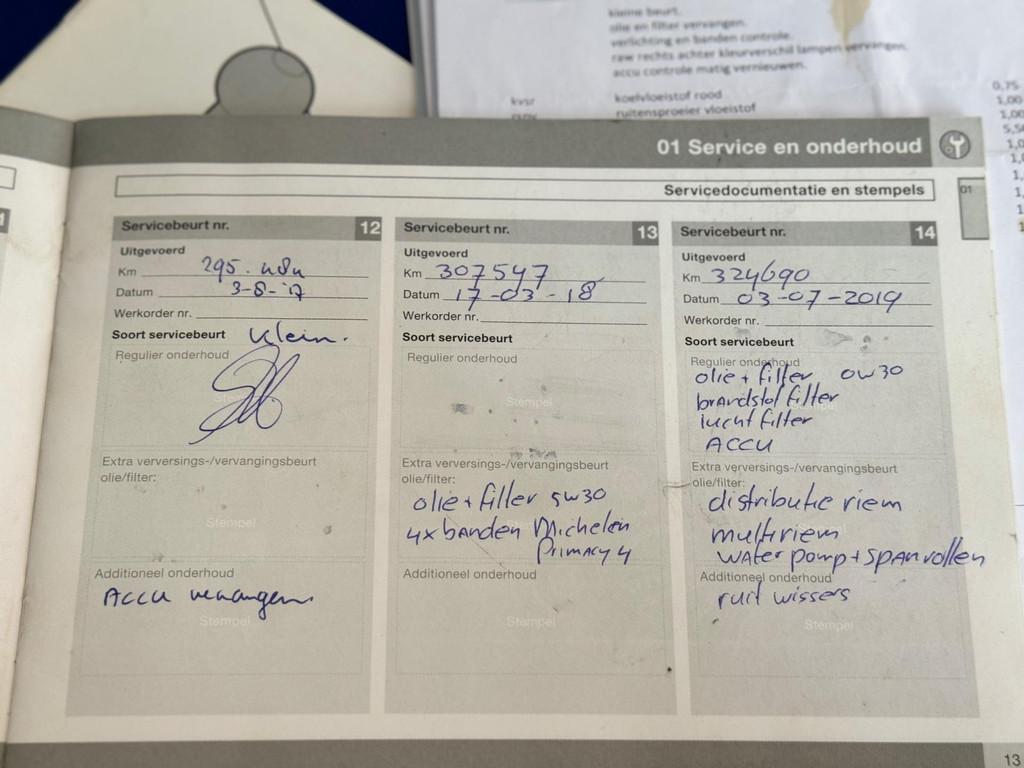 kleine beurt.
olie en filter vervangen.
verlichting en banden controle.
raw rechts achter kleurverschil lampen vervangen.
accu controle matig vernieuwen.
kvsr koelvloeistof rood 0,75
ruitensproeier vloeistof 1,00
01 Service en onderhoud
Servicedocumentatie en stempels
01
Servicebeurt nr. 12
Uitgevoerd
Km 295.
Datum 3-8-'17
Werkorder nr.
Soort servicebeurt Klein.
Regulier onderhoud
Extra verversings-/vervangingsbeurt
olie/filter:
Stempel
Additioneel onderhoud
ACCU vervangen.
Stempel
Servicebeurt nr. 13
Uitgevoerd
Km 307547
Datum 17-03-18
Werkorder nr.
Soort servicebeurt
Regulier onderhoud
Stempel
Extra verversings-/vervangingsbeurt
olie/filter:
olie + filter 5W30
4x banden Michelen
Primacy 4
Additioneel onderhoud
Stempel
Servicebeurt nr. 14
Uitgevoerd
Km 324690
Datum 03-07-2019
Werkorder nr.
Soort servicebeurt
Regulier onderhoud
olie + filter 0W30
brandstof filter
lucht filter
ACCU
Extra verversings-/vervangingsbeurt
olie/filter:
distributie riem
multiriem
water pomp + spanrollen
Additioneel onderhoud
ruit wissers
Stempel
13